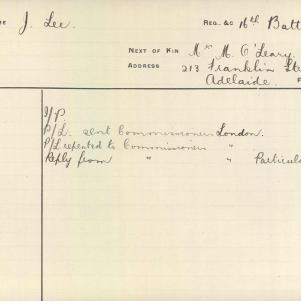 ME J. Lee. REG. &C 16th Batt
NEXT OF KIN Mrs M. O'Leary
ADDRESS 213 Franklin Stre
Adelaide.
I/P.
P/L. sent Commissioners London.
P/L repeated to Commissioners "
Reply from " " Particul